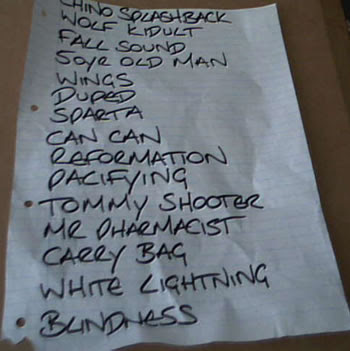 CHINO SPLASHBACK
WOLF KIDULT
FALL SOUND
50YR OLD MAN
WINGS
DUPED
SPARTA
CAN CAN
REFORMATION
PACIFYING
TOMMY SHOOTER
MR PHARMACIST
CARRY BAG
WHITE LIGHTNING
BLINDNESS